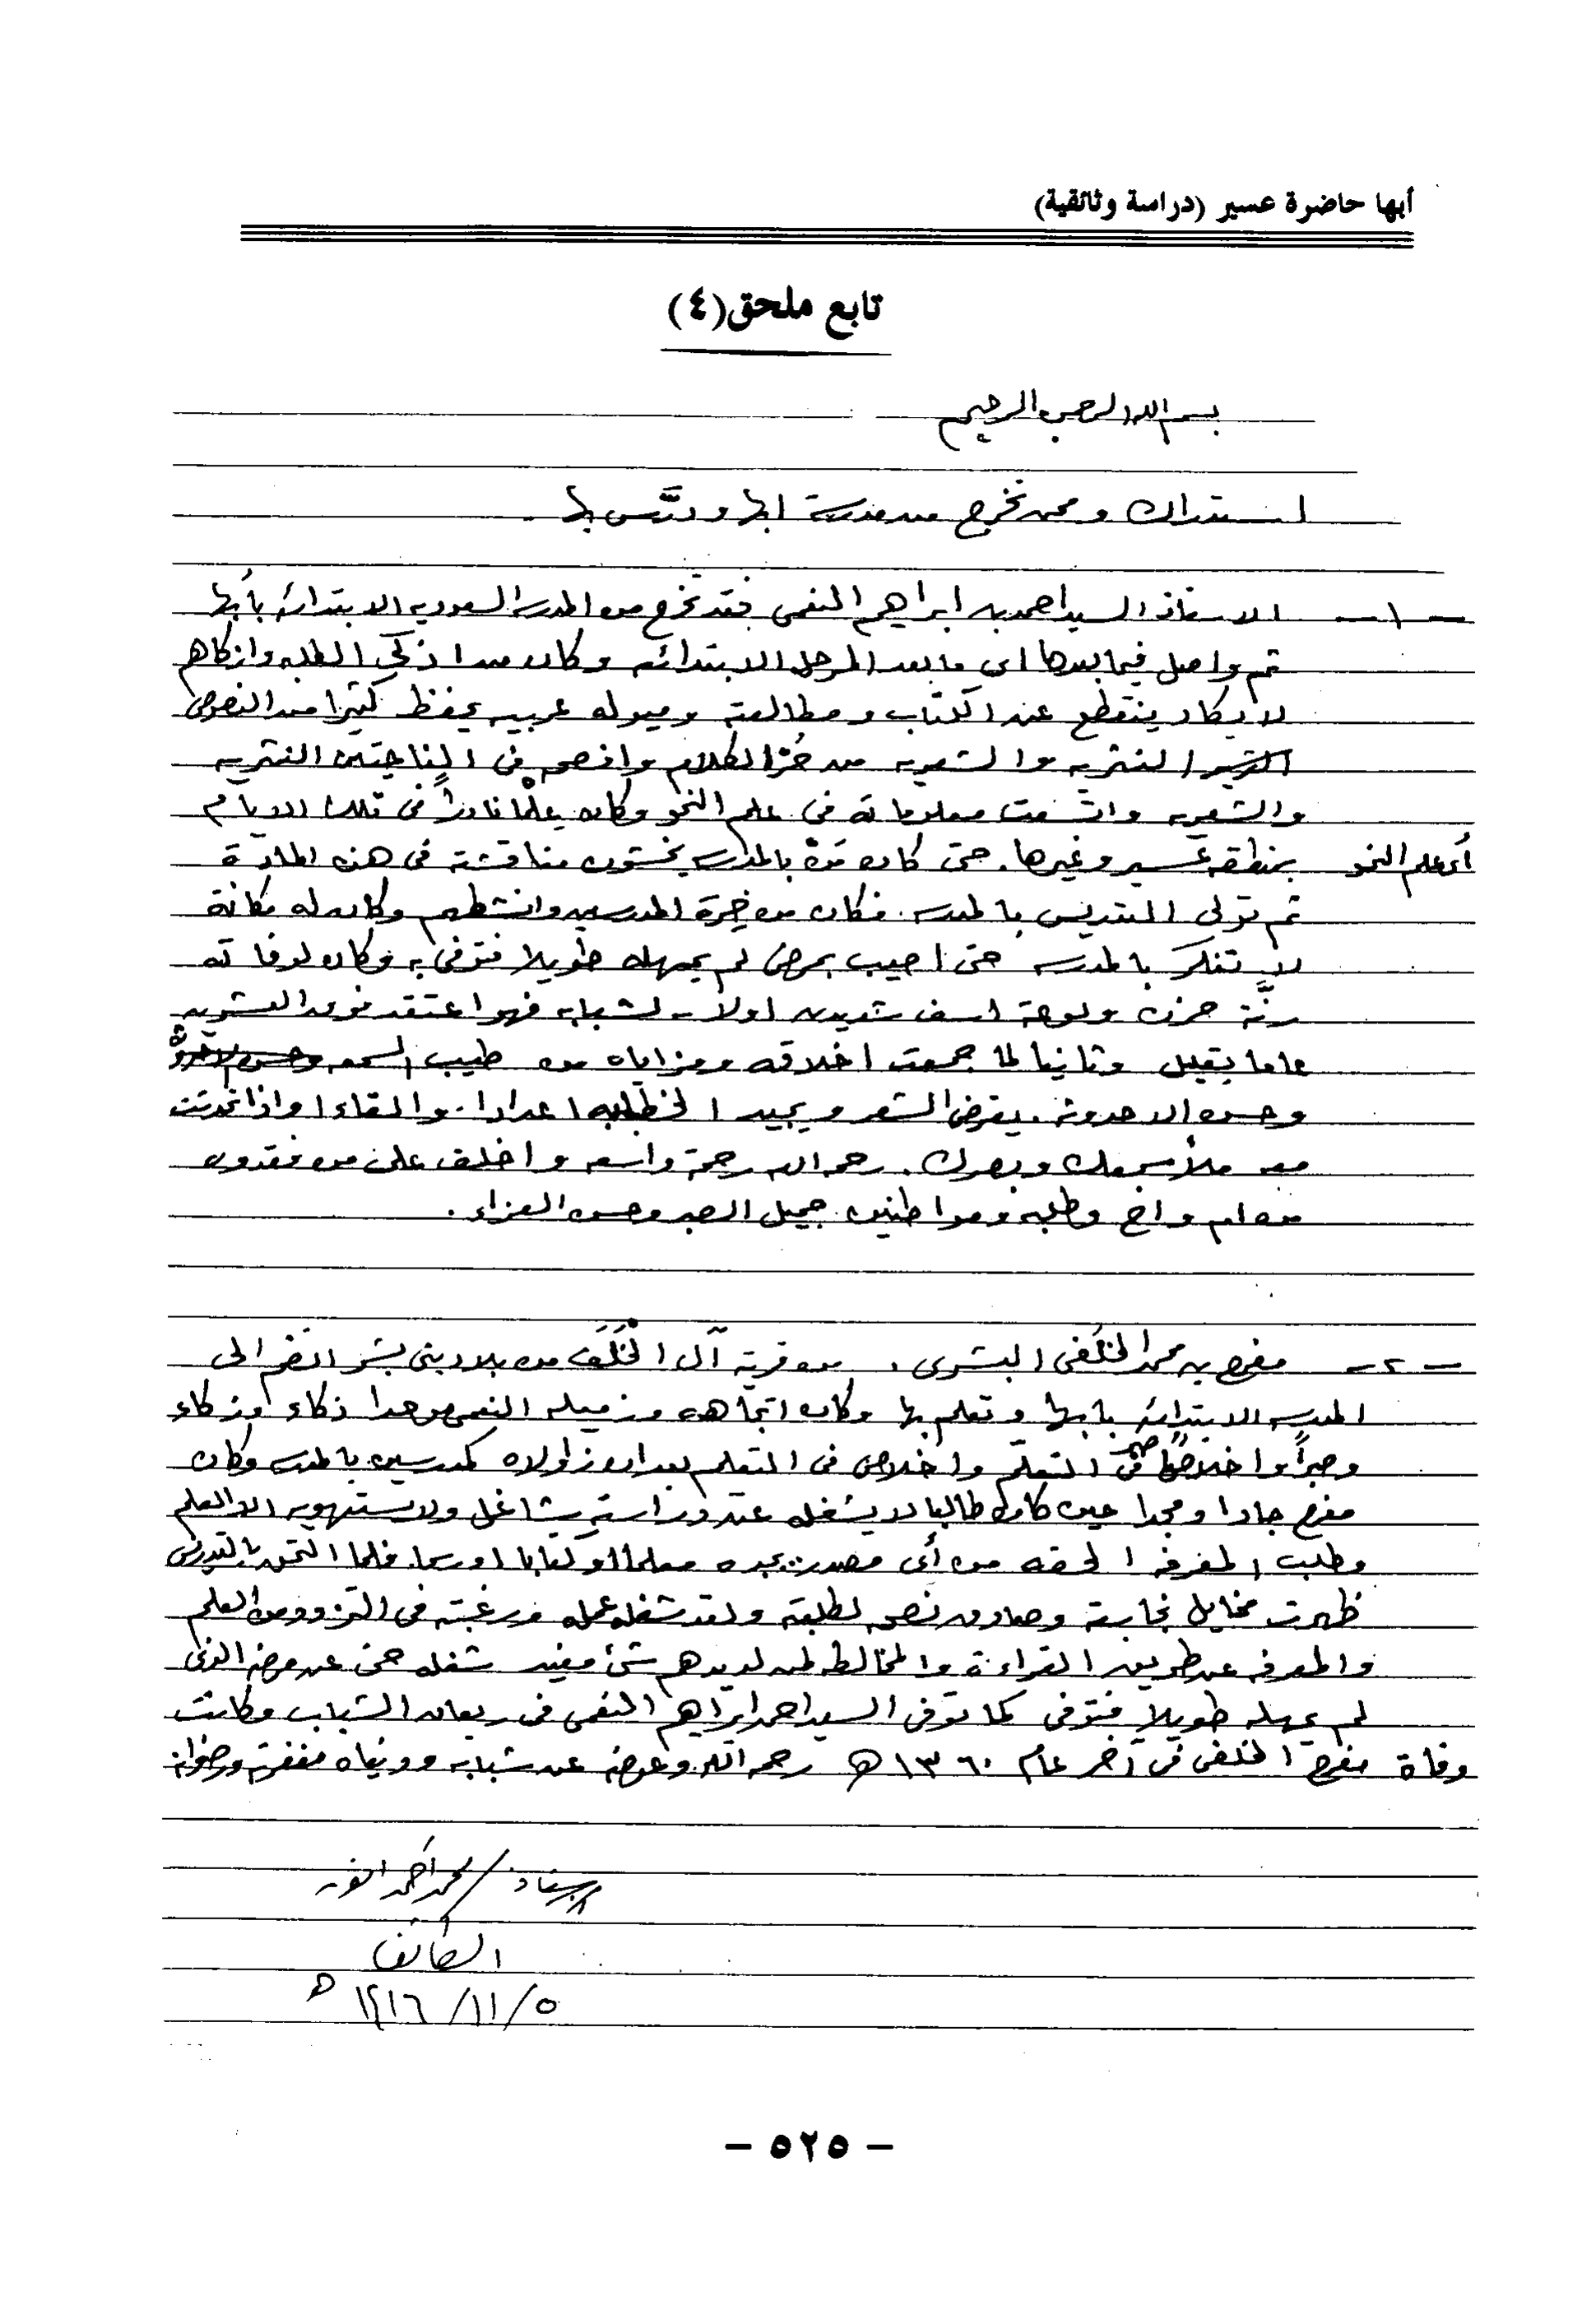 أبها حاضرة عسير (دراسة وثائقية)
تابع ملحق (٤)
بسم الله الرحمن الرحيم
استدراك وممن تخرج من مدرسة ابها ودرَّس بها .
- ١ - الاستاذ السيد احمد بن ابراهيم النعمى فقد تخرج من المدرسه السعوديه الابتدائه بأبها
ثم واصل فيما بعدها اى ما بعد المرحله الابتدائه وكان من اذكى الطلبه وازكاهم
لا يكاد ينقطع عن الكتاب ومطالعته وميوله عربيه يحفظ كثيرا من النصوص
النثريه والشعريه من حُرّ الكلام وافصحه فى الناحيتين النثريه
والشعريه واتسعت معلوماته فى علم النحو وكان علَماً نادراً فى تلك الايام
أى علم النحو بمنطقه عسير وغيرها . حتى كان بالمدرسه يخشون مناقشته فى هذه المادة
ثم تولى التدريس بالمدرسه . فكان من خيرة المدرسين وانشطهم وكان له مكانة
لا تنكر بالمدرسه حتى اصيب بمرض لم يمهله طويلا فتوفى به وكان لوفاته
رنّة حزن ولوعة اسف شديدين اولا - لشبابه فهو اعتقد فوق العشرين
عاما بقليل وثانيا لما جمعت اخلاقه ومزاياه من طيب السمعه
وحسن الاحدوثه . يقرض الشعر ويجيد الخطابه اعدادا . والقاءا واذا تحدثت
معه ملأ سمعك وبصرك . رحمه الله رحمة واسعه واخلف على من فقدون
من ام واخ وطلبه ومواطنين جميل الصبر وحسن العزاء .
- ٢ - مفرح بن محمد الخَلَفى البشرى . من قرية آل الخَلَف من بلاد بنى بشر انضم الى
المدرسه الابتدائه بابها وتعلم بها وكان اتجاهه وزميله النعمى موحدا ذكاء وزكاء
وصبراً واخلاصاً فى التعلّم واخلاص فى التعليم بعد ان زاولاه كمدرسين بالمدرسه وكان
مفرح جادا ومجدا حين كان طالبا لا يشغله عن دراسته شاغل ولا يستهويه الا العلم
وطلب المعرفه الحقه من أى مصدر يجده معلما او كتابا او رسما . فلما التحق بالتدريس
ظهرت مخايل نجابته وصادق نصحه لطلبته ولقد شغله عمله ورغبته فى التزود من العلم
والمعرفه عن طريق القراءة والمخالطه لمن لديهم شئ مفيد شغله حتى عن مرضه الذى
لم يمهله طويلا فتوفى كما توفى السيد احمد ابراهيم النعمى فى ريعان الشباب وكانت
وفاة مفرح الخلفى فى آخر عام ١٣٦٠ هـ رحمه الله وعوضه عن شبابه ودنياه مغفرته ورضوانه
الاستاذ / محمد أحمد انور
الطائف
٥ / ١١ / ١٤١٦ هـ
- ٥٢٥ -